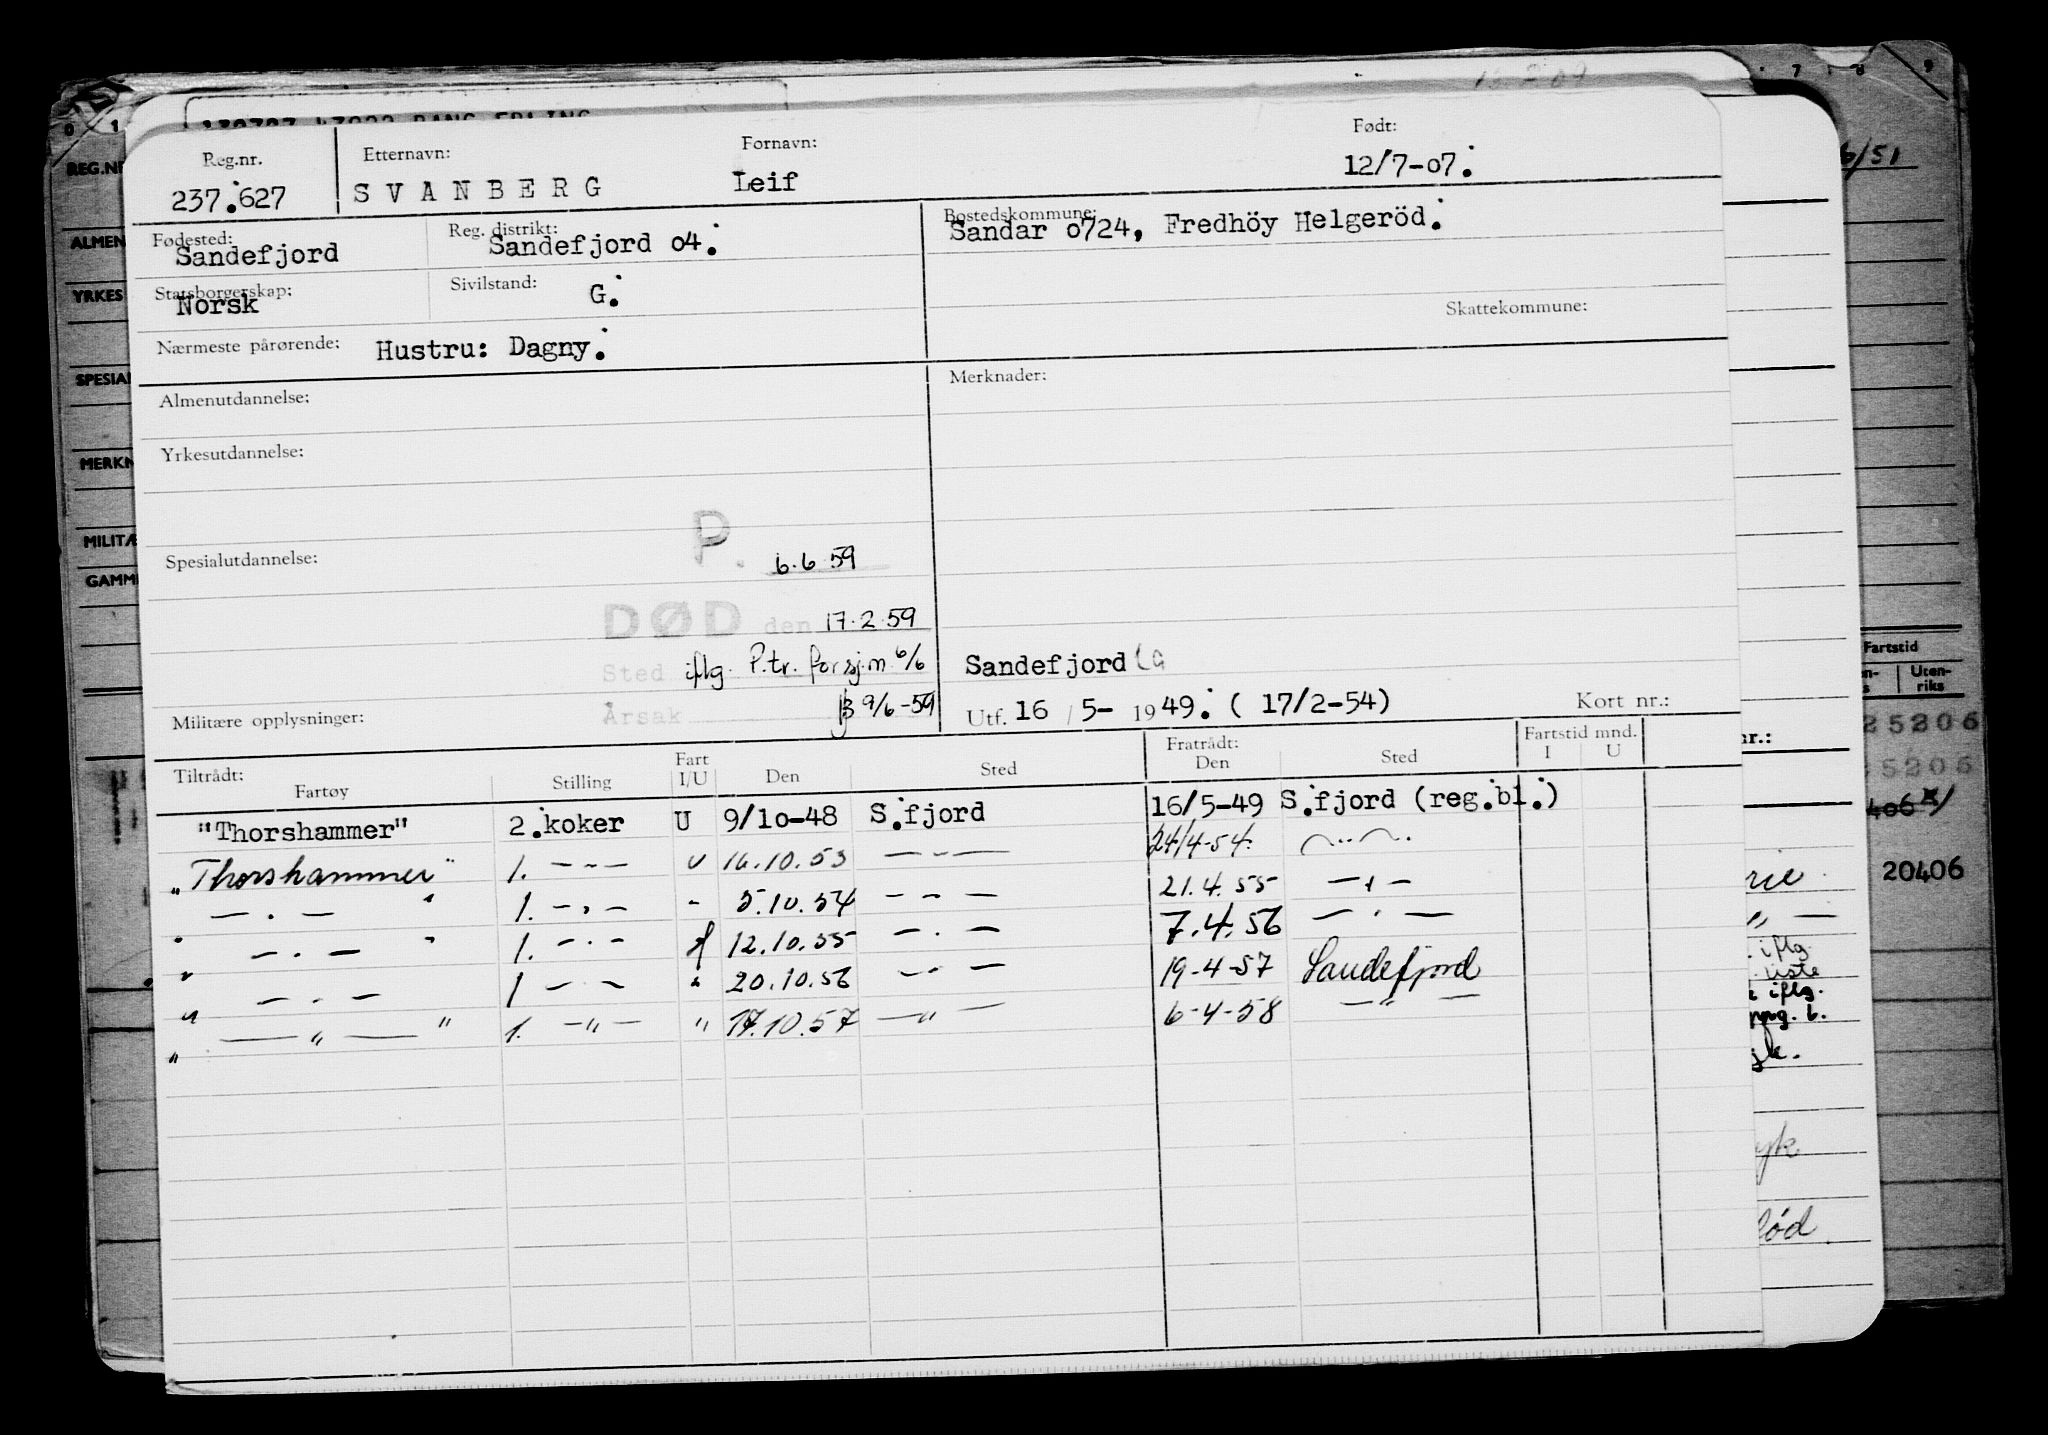 7 8 9
0 1
REG.NR
6/51
Reg.nr. Etternavn: Fornavn: Født:
237.627 SVANBERG Leif 12/7-07.
ALMEN
Fødested: Reg. distrikt: Bostedskommune:
Sandefjord Sandefjord o4. Sandar o724, Fredhöy Helgeröd.
YRKES
Statsborgerskap: Sivilstand:
Norsk G.
Skattekommune:
Nærmeste pårørende: Hustru: Dagny.
SPESIAL
Almenutdannelse: Merknader:
MERKN
Yrkesutdannelse:
MILITÆ
P. 6.6 59
Spesialutdannelse:
GAMM
DØD den 17.2.59
Sted iflg. P.tr. for sjm 6/6 Sandefjord
Årsak 9/6-59
Militære opplysninger: Utf. 16 / 5- 1949. ( 17/2-54) Kort nr.:
Fartstid
Uten-
riks
25206
nr.:
5206
406
20406
Tiltrådt: Fart Fratrådt: Fartstid mnd.
Fartøy Stilling I/U Den Sted Den Sted I U
"Thorshammer" 2.koker U 9/1o-48 S.fjord 16/5-49 S.fjord (reg.bl.)
"Thorshammer" 1. -"- U 16.10.53 -"- 24/4-54. -"-
" - " - " 1. -"- " 5.10.54 -"- 21.4.55 -"-
" - " - " 1. -"- 12.10.55 -"- 7.4.56 -"-
" - " - 1 -"- " 20.10.56 -"- 19-4-57 Sandefjord
" - " - " 1. -"- " 17.10.57 -"- 6-4-58 -"-
iflg.
liste
iflg.